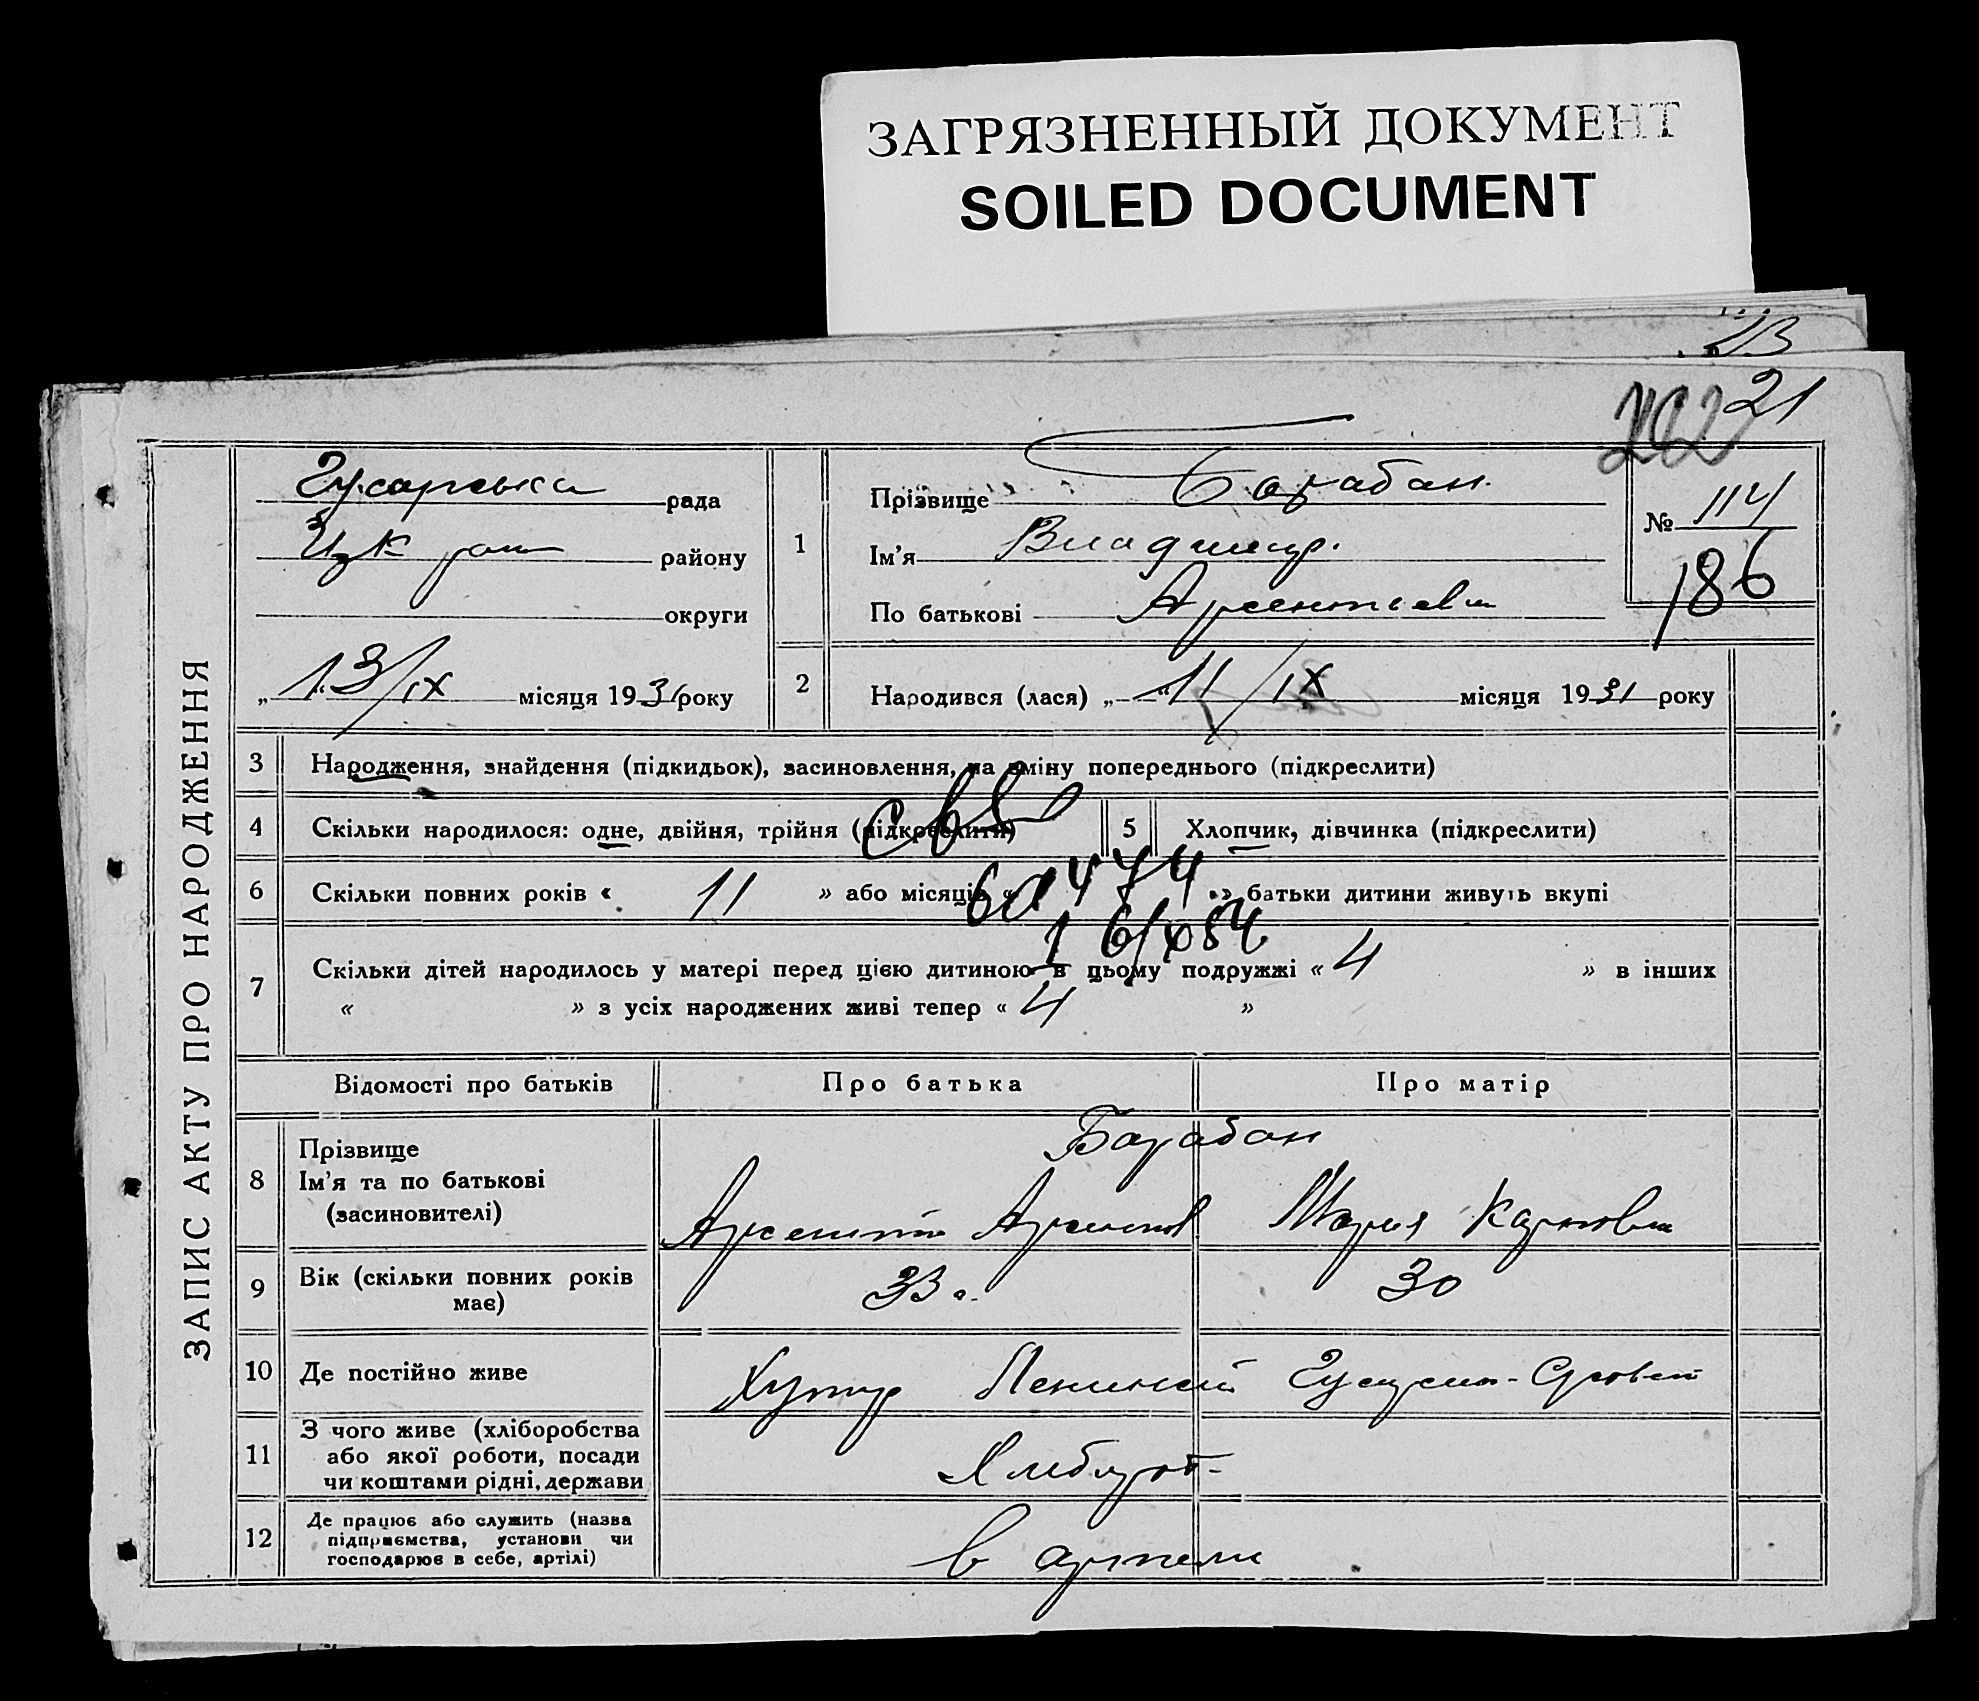 ЗАГРЯЗНЕННЫЙ ДОКУМЕНТ
SOILED DOCUMENT
21
ЗАПИС АКТУ ПРО НАРОДЖЕННЯ
Гусарська рада
району
округи
„13/IX місяця 1931 року
1
Прізвище Барабан
Ім'я Владимир.
По батькові Арсентьев
№ 114
186
2
Народився (лася) „11/IX місяця 1931 року
3 Народження, знайдення (підкидьок), засиновлення, на зміну попереднього (підкреслити)
4 Скільки народилося: одне, двійня, трійня (підкреслити)
5 Хлопчик, дівчинка (підкреслити)
6 Скільки повних років « 11 » або місяців « » батьки дитини живуть вкупі
7 Скільки дітей народилось у матері перед цією дитиною в цьому подружжі « 4 » в інших
« » з усіх народжених живі тепер « 4 »
Відомості про батьків Про батька Про матір
8 Прізвище
Ім'я та по батькові
(засиновителі)
Барабан
Арсентий Арсентьев Мария Карповна
9 Вік (скільки повних років
має)
33 г. 30
10 Де постійно живе Хутор Ленинский
11 З чого живе (хліборобства
або якої роботи, посади
чи коштами рідні, держави
Хлебороб-
12 Де працює або служить (назва
підприємства, установи чи
господарює в себе, артілі)
в артели